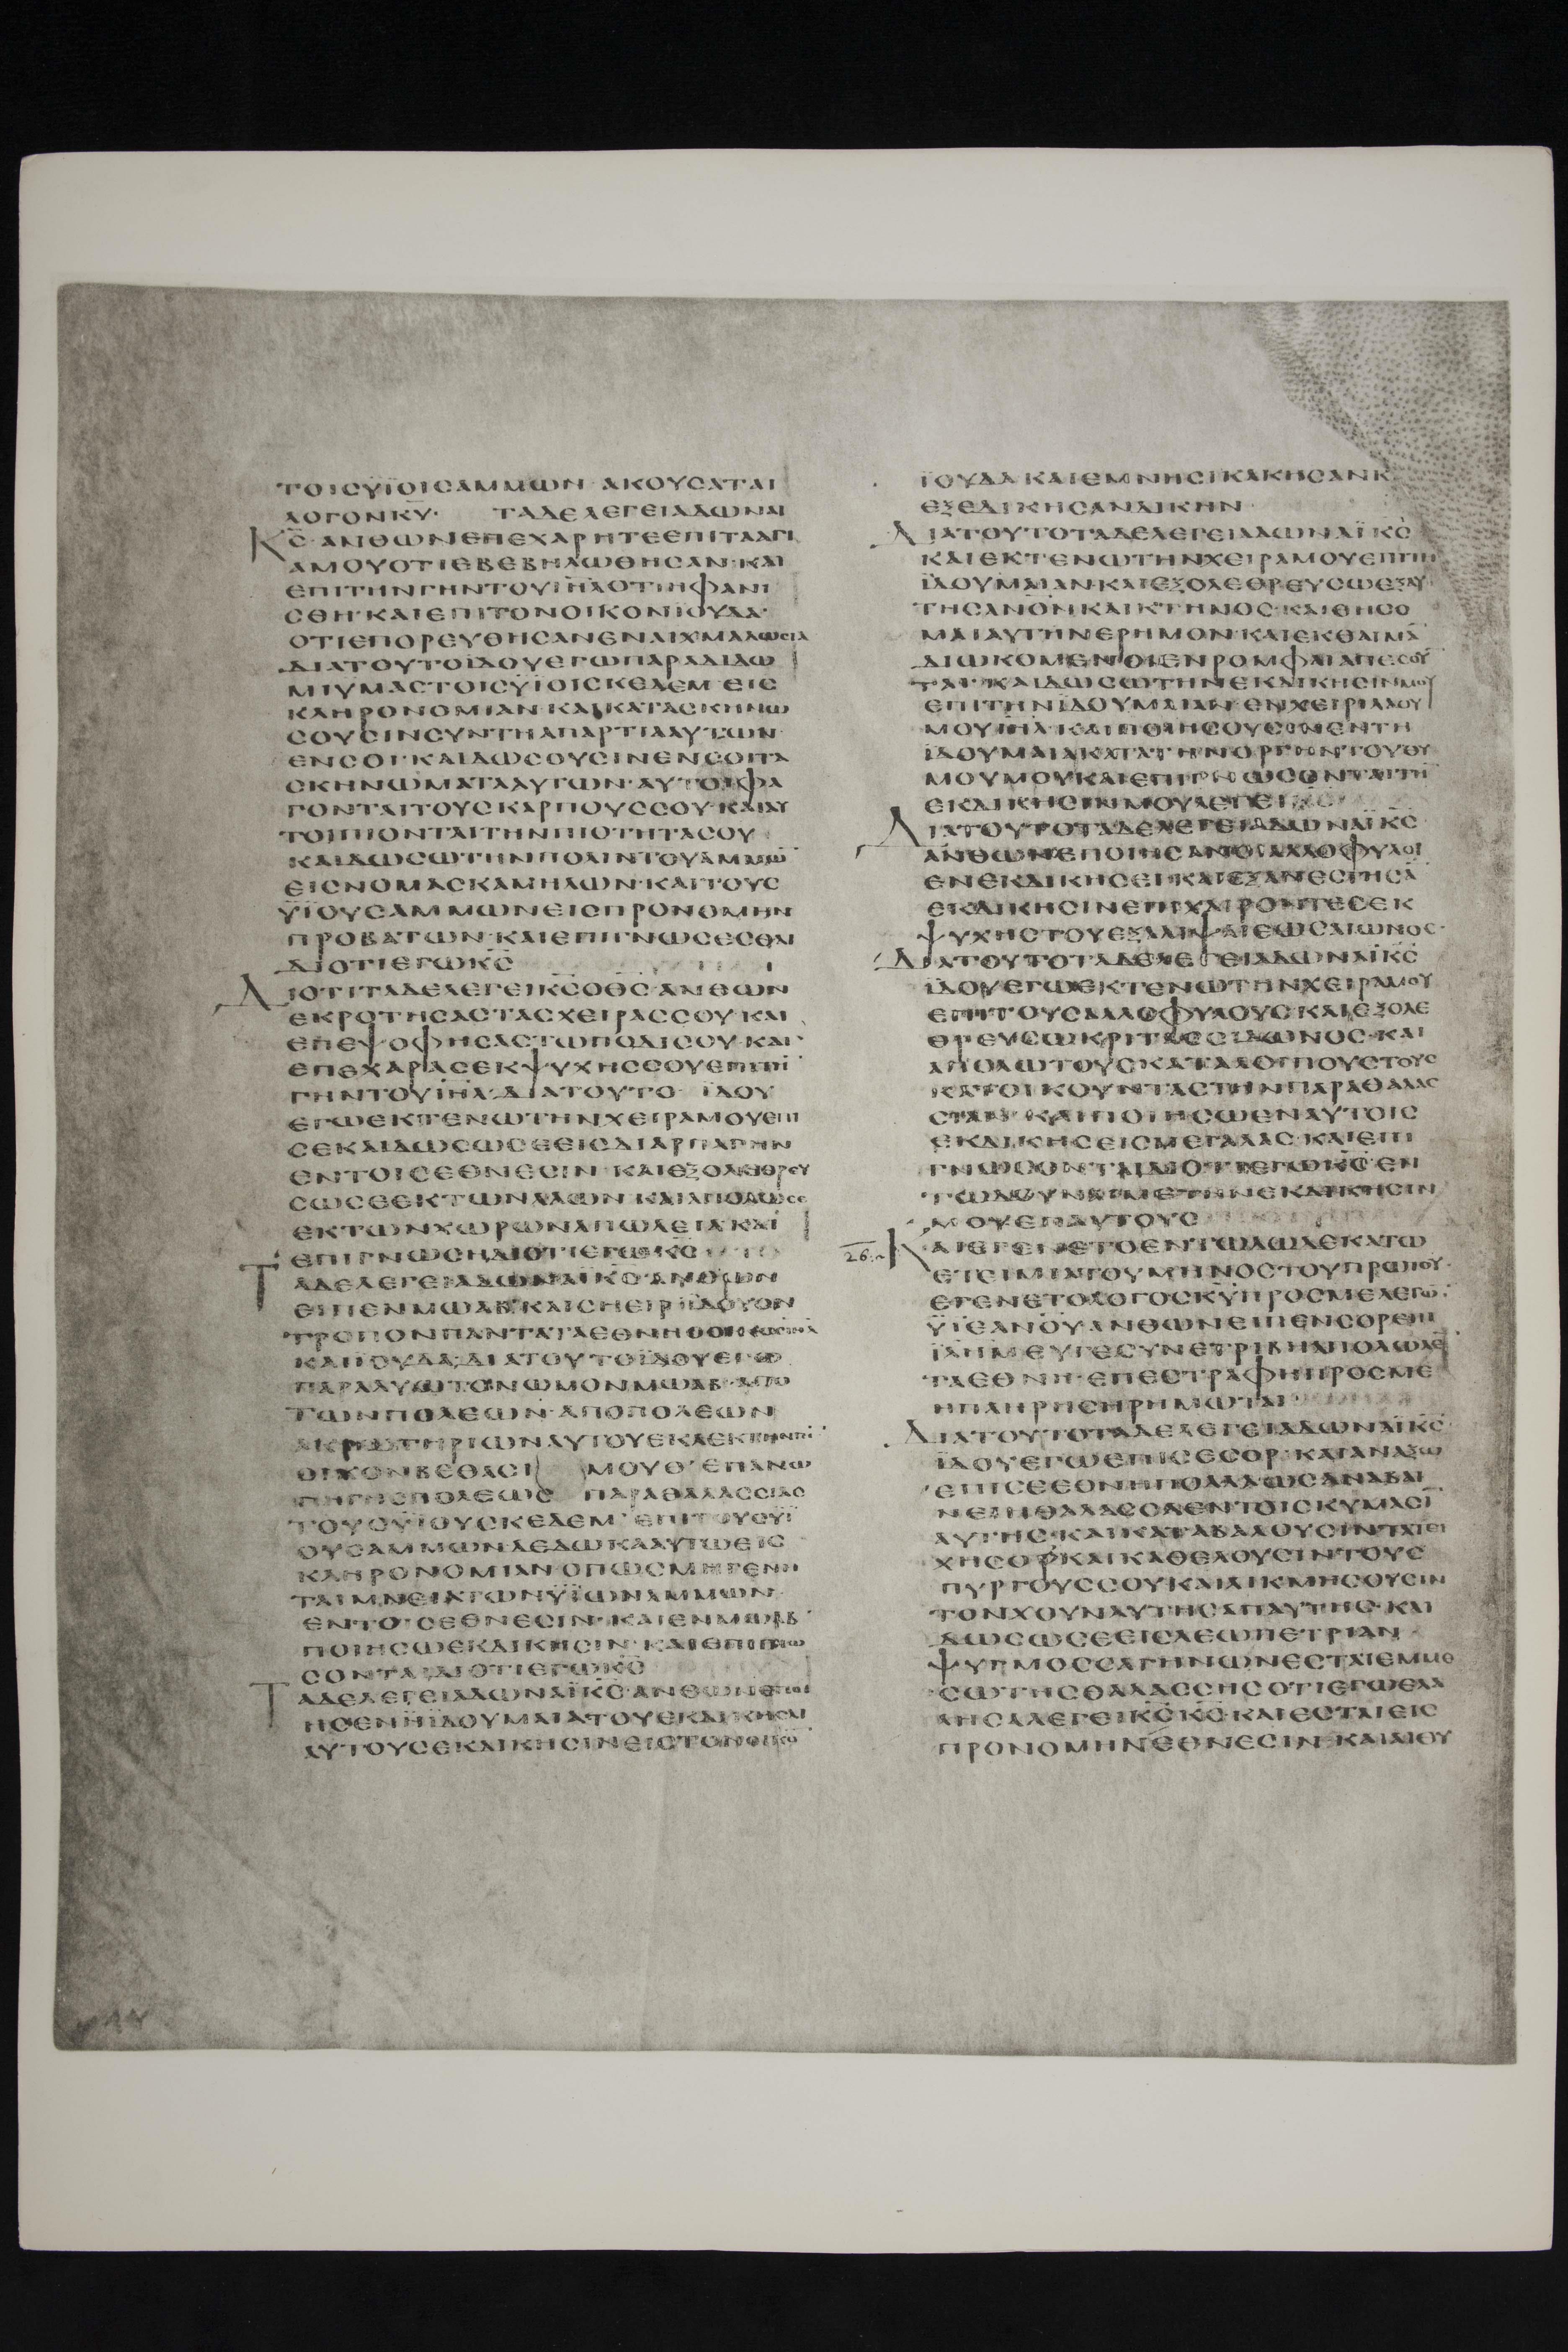 ΤΟΙΣΥΪΟΙΣΑΜΜΩΝ ΑΚΟΥΣΑΤΑΙ
ΛΟΓΟΝΚΥ· ΤΑΔΕΛΕΓΕΙΑΔΩΝΑΙ
ΚΣ·ΑΝΘΩΝΕΠΕΧΑΡΗΤΕΕΠΙΤΑΑΓΙ
ΑΜΟΥΟΤΙΕΒΕΒΗΛΩΘΗΣΑΝ·ΚΑΙ
ΕΠΙΤΗΝΓΗΝΤΟΥΙΗΛΟΤΙΗΦΑΝΙ
ΣΘΗ·ΚΑΙΕΠΙΤΟΝΟΙΚΟΝΙΟΥΔΑ·
ΟΤΙΕΠΟΡΕΥΘΗΣΑΝΕΝΑΙΧΜΑΛΩΣΙΑ
ΔΙΑΤΟΥΤΟΪΔΟΥΕΓΩΠΑΡΑΔΙΔΩ
ΜΙΥΜΑΣΤΟΙΣΥΪΟΙΣΚΕΔΕΜ ΕΙΣ
ΚΛΗΡΟΝΟΜΙΑΝ·ΚΑΙΚΑΤΑΣΚΗΝΩ
ΣΟΥΣΙΝΣΥΝΤΗΑΠΑΡΤΙΑΑΥΤΩΝ
ΕΝΣΟΙ·ΚΑΙΔΩΣΟΥΣΙΝΕΝΣΟΙΤΑ
ΣΚΗΝΩΜΑΤΑΑΥΤΩΝ·ΑΥΤΟΙΦΑ
ΓΟΝΤΑΙΤΟΥΣΚΑΡΠΟΥΣΣΟΥ·ΚΑΙΑΥ
ΤΟΙΠΙΟΝΤΑΙΤΗΝΠΙΟΤΗΤΑΣΟΥ
ΚΑΙΔΩΣΩΤΗΝΠΟΛΙΝΤΟΥΑΜΜΩ̅
ΕΙΣΝΟΜΑΣΚΑΜΗΛΩΝ·ΚΑΙΤΟΥΣ
ΥΪΟΥΣΑΜΜΩΝΕΙΣΠΡΟΝΟΜΗΝ
ΠΡΟΒΑΤΩΝ·ΚΑΙΕΠΙΓΝΩΣΕΣΘΑΙ
ΔΙΟΤΙΕΓΩΚΣ
ΔΙΟΤΙΤΑΔΕΛΕΓΕΙΚΣΟΘΣ·ΑΝΘΩΝ
ΕΚΡΟΤΗΣΑΣΤΑΣΧΕΙΡΑΣΣΟΥ·ΚΑΙ
ΕΠΕΨΟΦΗΣΑΣΤΩΠΟΔΙΣΟΥ·ΚΑΙ
ΕΠΕΧΑΡΑΣΕΚΨΥΧΗΣΣΟΥΕΠΙΤΗ̅
ΓΗΝΤΟΥΙΗΛ·ΔΙΑΤΟΥΤΟ ΪΔΟΥ
ΕΓΩΕΚΤΕΝΩΤΗΝΧΕΙΡΑΜΟΥΕΠΙ
ΣΕΚΑΙΔΩΣΩΣΕΕΙΣΔΙΑΡΠΑΓΗΝ
ΕΝΤΟΙΣΕΘΝΕΣΙΝ·ΚΑΙΕΞΟΛΕΘΡΕΥ
ΣΩΣΕΕΚΤΩΝΛΑΩΝ ΚΑΙΑΠΟΛΩΣΕ
ΕΚΤΩΝΧΩΡΩΝΑΠΩΛΕΙΑΚΑΙ
ΕΠΙΓΝΩΣΗΔΙΟΤΙΕΓΩΚΣ
ΤΑΔΕΛΕΓΕΙΑΔΩΝΑΪΚΣ·ΑΝΘΩΝ
ΕΙΠΕΝΜΩΑΒ·ΚΑΙΣΗΕΙΡΪΔΟΥΟΝ
ΤΡΟΠΟΝΠΑΝΤΑΤΑΕΘΝΗ
ΚΑΙΪΟΥΔΑ·ΔΙΑΤΟΥΤΟΪΔΟΥΕΓΩ
ΠΑΡΑΛΥΩΤΟΝΩΜΟΝΜΩΑΒ·ΑΠΟ
ΤΩΝΠΟΛΕΩΝ·ΑΠΟΠΟΛΕΩΝ
ΑΚΡΩΤΗΡΙΩΝΑΥΤΟΥΕΚΛΕΚΤΗΝΓΗ̅
ΟΙΚΟΝΒΕΘΑΣΙ ΜΟΥΘ·ΕΠΑΝΩ
ΠΗΓΗΣΠΟΛΕΩΣ ΠΑΡΑΘΑΛΑΣΣΙΑΣ
ΤΟΥΣΥΪΟΥΣΚΕΔΕΜ·ΕΠΙΤΟΥΣΥΪ
ΟΥΣΑΜΜΩΝΔΕΔΩΚΑΑΥΤΩΕΙΣ
ΚΛΗΡΟΝΟΜΙΑΝ·ΟΠΩΣΜΗΓΕΝΗ
ΤΑΙΜΝΕΙΑΤΩΝΥΪΩΝΑΜΜΩΝ
ΕΝΤΟΙΣΕΘΝΕΣΙΝ·ΚΑΙΕΝΜΩΑΒ
ΠΟΙΗΣΩΕΚΔΙΚΗΣΙΝ·ΚΑΙΕΠΙΓΝΩ
ΣΟΝΤΑΙΔΙΟΤΙΕΓΩΚΣ
ΤΑΔΕΛΕΓΕΙΑΔΩΝΑΪΚΣ·ΑΝΘΩΝΕΠΟΙ
ΗΣΕΝΗΪΔΟΥΜΑΙΑΤΟΥΕΚΔΙΚΗΣΑΙ
ΑΥΤΟΥΣΕΚΔΙΚΗΣΙΝΕΙΣΤΟΝΟΙΚΟ̅
ΪΟΥΔΑ ΚΑΙΕΜΝΗΣΙΚΑΚΗΣΑΝΚ
ΕΞΕΔΙΚΗΣΑΝΔΙΚΗΝ
ΔΙΑΤΟΥΤΟΤΑΔΕΛΕΓΕΙΑΔΩΝΑΪΚΣ
ΚΑΙΕΚΤΕΝΩΤΗΝΧΕΙΡΑΜΟΥΕΠΙΤΗ̅
ΪΔΟΥΜΑΙΑΝ·ΚΑΙΕΞΟΛΕΘΡΕΥΣΩΕΞΑΥ
ΤΗΣΑΝΟΝΚΑΙΚΤΗΝΟΣ·ΚΑΙΘΗΣΟ
ΜΑΙΑΥΤΗΝΕΡΗΜΟΝ·ΚΑΙΕΚΘΑΙΜΑ̅
ΔΙΩΚΟΜΕΝΟΙΕΝΡΟΜΦΑΙΑΠΕΣΟΥ̅
ΤΑΙ·ΚΑΙΔΩΣΩΤΗΝΕΚΔΙΚΗΣΙΝΜΟΥ
ΕΠΙΤΗΝΪΔΟΥΜΑΙΑΝ·ΕΝΧΕΙΡΙΛΑΟΥ
ΜΟΥΙΗΛ·ΚΑΙΠΟΙΗΣΟΥΣΙΝΕΝΤΗ
ΪΔΟΥΜΑΙΑΚΑΤΑΤΗΝΟΡΓΗΝΤΟΥΘΥ
ΜΟΥΜΟΥΚΑΙΕΠΙΓΝΩΣΟΝΤΑΙΤΗ̅
ΕΚΔΙΚΗΣΙΝΜΟΥΛΕΓΕΙ
ΔΙΑΤΟΥΤΟΤΑΔΕΛΕΓΕΙΑΔΩΝΑΪΚΣ
ΑΝΘΩΝΕΠΟΙΗΣΑΝΟΙΑΛΛΟΦΥΛΟΙ
ΕΝΕΚΔΙΚΗΣΕΙ·ΚΑΙΕΞΑΝΕΣΤΗΣΑ̅
ΕΚΔΙΚΗΣΙΝΕΠΙΧΑΙΡΟΝΤΕΣΕΚ
ΨΥΧΗΣΤΟΥΕΞΑΛΙΨΑΙΕΩΣΑΙΩΝΟΣ·
ΔΙΑΤΟΥΤΟΤΑΔΕΛΕΓΕΙΑΔΩΝΑΪΚΣ
ΪΔΟΥΕΓΩΕΚΤΕΝΩΤΗΝΧΕΙΡΑΜΟΥ
ΕΠΙΤΟΥΣΑΛΛΟΦΥΛΟΥΣΚΑΙΕΞΟΛΕ
ΘΡΕΥΣΩΚΡΙΤΑΣΣΙΔΩΝΟΣ·ΚΑΙ
ΑΠΟΛΩΤΟΥΣΚΑΤΑΛΟΙΠΟΥΣΤΟΥΣ
ΚΑΤΟΙΚΟΥΝΤΑΣΤΗΝΠΑΡΑΘΑΛΑΣ
ΣΙΑΝ·ΚΑΙΠΟΙΗΣΩΕΝΑΥΤΟΙΣ
ΕΚΔΙΚΗΣΕΙΣΜΕΓΑΛΑΣ·ΚΑΙΕΠΙ
ΓΝΩΣΟΝΤΑΙΔΙΟΤΙΕΓΩΚΣ·ΕΝ
ΤΩΔΟΥΝΑΙΜΕΤΗΝΕΚΔΙΚΗΣΙΝ
ΜΟΥΕΠΑΥΤΟΥΣ
26 ΚΑΙΕΓΕΝΕΤΟΕΝΤΩΔΩΔΕΚΑΤΩ
ΕΤΕΙΜΙΑΤΟΥΜΗΝΟΣΤΟΥΠΡΩΤΟΥ·
ΕΓΕΝΕΤΟΛΟΓΟΣΚΥΠΡΟΣΜΕΛΕΓΩ̅·
ΥΪΕΑΝΟΥΑΝΘΩΝΕΙΠΕΝΣΟΡΕΠΙ
ΪΛΗΜΕΥΓΕΣΥΝΕΤΡΙΒΗΑΠΟΛΩΛΕ̅
ΤΑΕΘΝΗ·ΕΠΕΣΤΡΑΦΗΠΡΟΣΜΕ
ΗΠΛΗΡΗΣΗΡΗΜΩΤΑΙ·
ΔΙΑΤΟΥΤΟΤΑΔΕΛΕΓΕΙΑΔΩΝΑΪΚΣ·
ΪΔΟΥΕΓΩΕΠΙΣΕΣΟΡ·ΚΑΙΑΝΑΞΩ
ΕΠΙΣΕΕΘΝΗΠΟΛΛΑΩΣΑΝΑΒΑΙ
ΝΕΙΗΘΑΛΑΣΣΑΕΝΤΟΙΣΚΥΜΑΣΙ̅
ΑΥΤΗΣ·ΚΑΙΚΑΤΑΒΑΛΟΥΣΙΝΤΑΤΕΙ
ΧΗΣΟΡ·ΚΑΙΚΑΘΕΛΟΥΣΙΝΤΟΥΣ
ΠΥΡΓΟΥΣΣΟΥΚΑΙΛΙΚΜΗΣΟΥΣΙΝ
ΤΟΝΧΟΥΝΑΥΤΗΣΑΠΑΥΤΗΣ·ΚΑΙ
ΔΩΣΩΣΕΕΙΣΛΕΩΠΕΤΡΙΑΝ
ΨΥΓΜΟΣΣΑΓΗΝΩΝΕΣΤΑΙΕΜΜΕ
ΣΩΤΗΣΘΑΛΑΣΣΗΣΟΤΙΕΓΩΕΛΑ
ΛΗΣΑΛΕΓΕΙΚΣΚΣ·ΚΑΙΕΣΤΑΙΕΙΣ
ΠΡΟΝΟΜΗΝΕΘΝΕΣΙΝ·ΚΑΙΑΙΘΥ